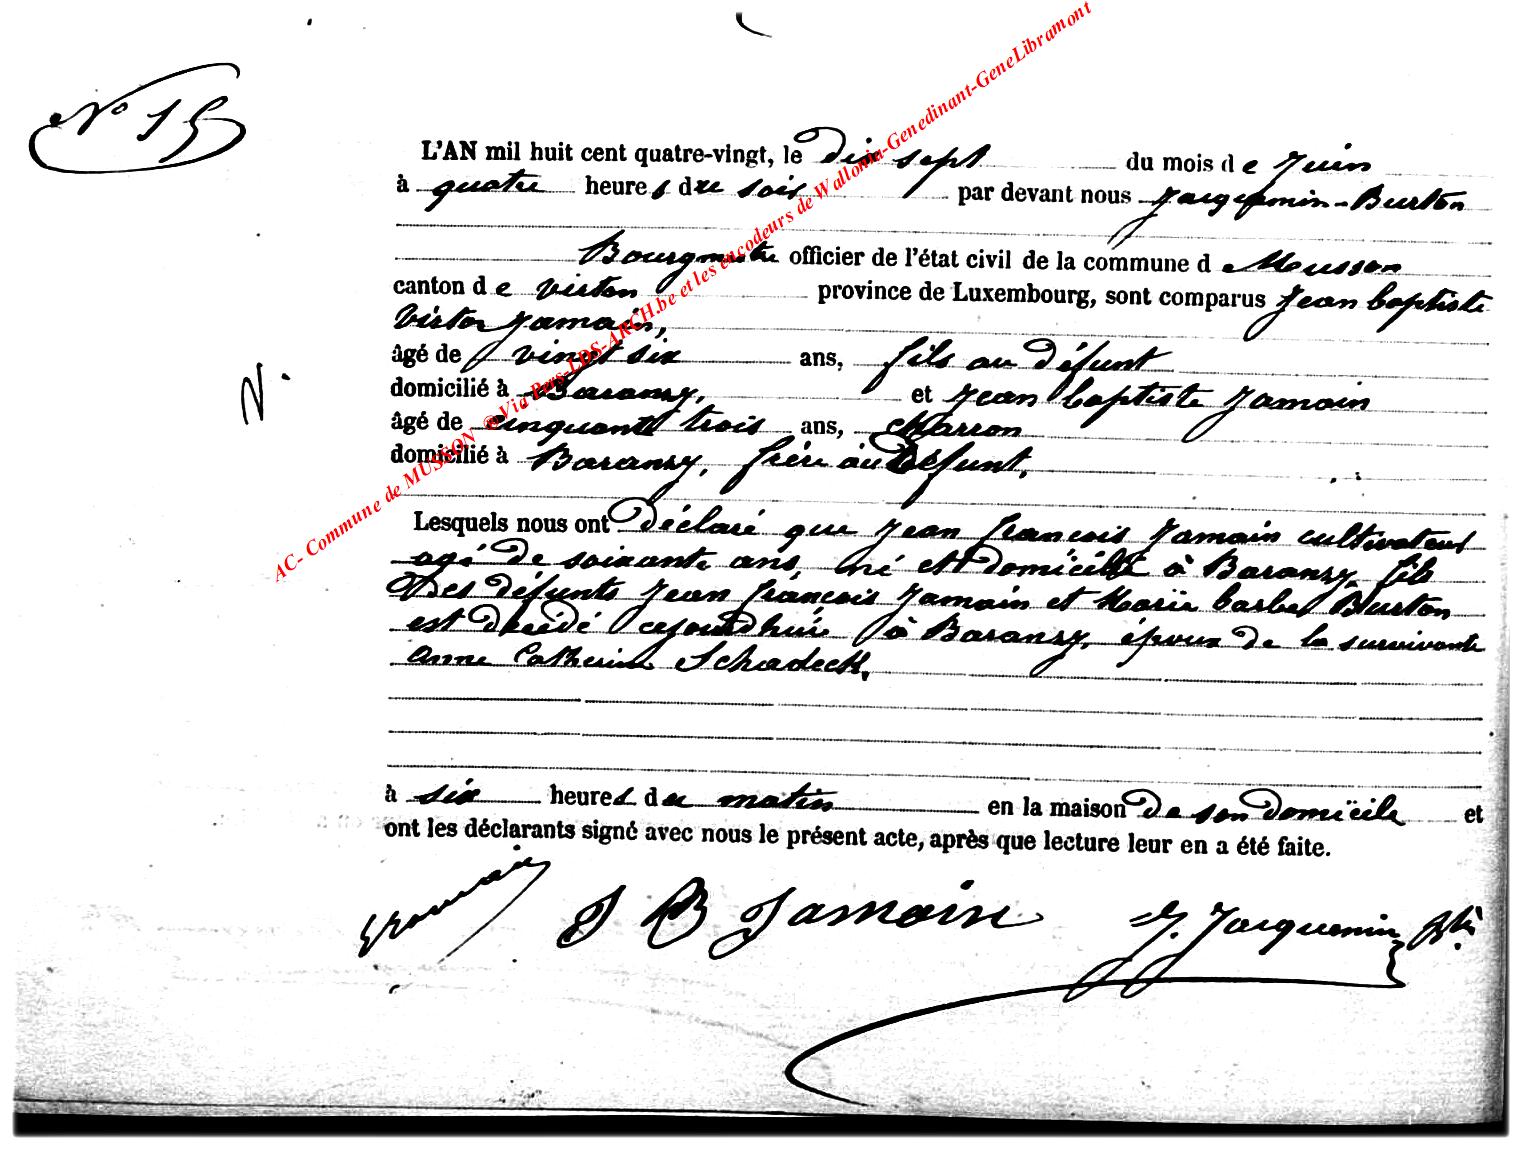 N° 15
L'AN mil huit cent quatre-vingt, le dix sept du mois de Juin
à quatre heures du soir par devant nous Jacquemin-Burton
Bourgmestre officier de l'état civil de la commune de Musson
canton de Virton province de Luxembourg, sont comparus Jean baptiste
Victor Jamain,
âgé de vingt six ans, fils au défunt
domicilié à Baranzy, et Jean baptiste Jamain
N.
âgé de cinquante trois ans, charron
domicilié à Baranzy, frère au Défunt,
Lesquels nous ont déclaré que Jean françois Jamain cultivateur
agé de soixante ans, né et domicilié à Baranzy, fils
Des défunts Jean françois Jamain et Marie barbe Burton
est décédé cejourdhui à Baranzy, époux de la survivante
anne Catherine Schadeck,
à six heures du matin en la maison de son domicile et
ont les déclarants signé avec nous le présent acte, après que lecture leur en a été faite.
J B Jamain J. Jacquemin
AC- Commune de MUSSON @Via Pers-LDS-ARCH.be et les encodeurs de Wallonia-Genedinant-GeneLibramont